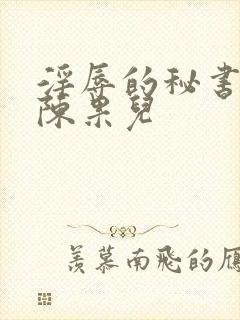 淫辱的秘书
陈果儿
羡慕南飞的雁